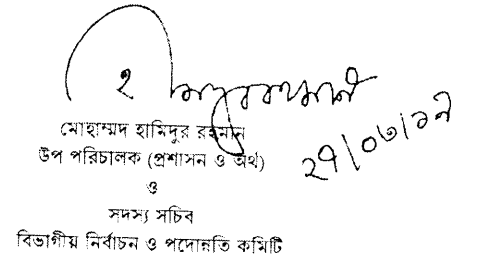 মোহাম্মদ হামিদুর রহমান
উপ পরিচালক (প্রশাসন ও অর্থ)
২৭/০৩/১৭
ও
সদস্য সচিব
বিভাগীয় নির্বাচন ও পদোন্নতি কমিটি